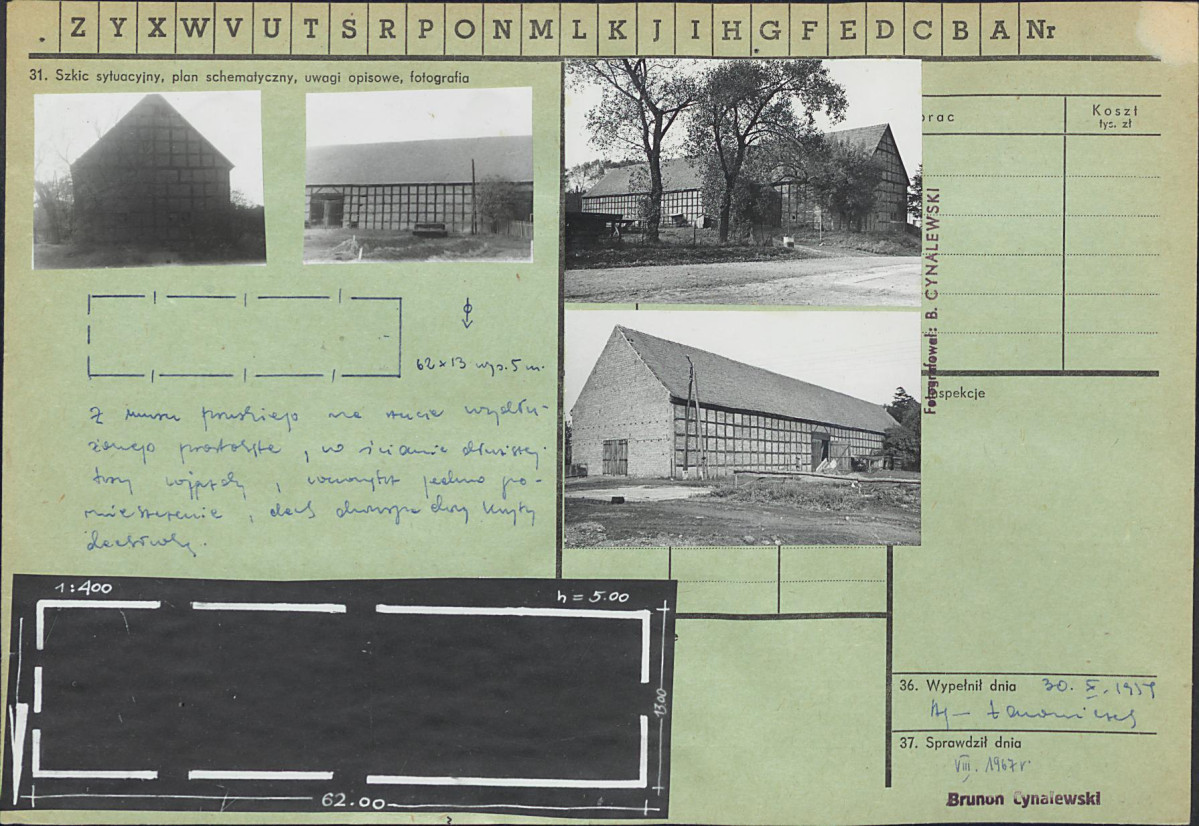 Z Y X W V U T S R P O N M L K J I H G F E D C B A Nr
31. Szkic sytuacyjny, plan schematyczny, uwagi opisowe, fotografia
62 × 13 wys. 5 m.
Z muru pruskiego na rzucie wydłu-
żonego prostokąta, w ścianie dłuższej
trzy wjazdy, wewnątrz jedno po-
mieszczenie, dach dwuspadowy kryty
dachówką.
1:400
h = 5.00
1300
62.00
prac
Koszt
tys. zł
Fotografował: B. CYNALEWSKI
Inspekcje
36. Wypełnił dnia 30. X. 1959
37. Sprawdził dnia
VIII. 1967 r.
Brunon Cynalewski